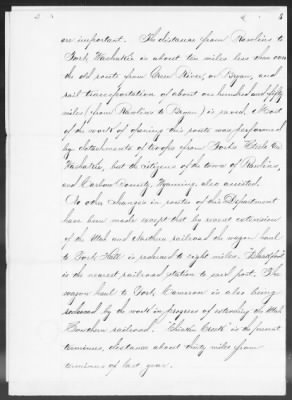 are important. The distance from Rawlins to
Fort Washakie is about ten miles less than over
the old route from Green River, or Bryan, and
rail transportation of about one hundred and fifty
miles (from Rawlins to Bryan) is saved. Most
of the work of opening this route was performed
by detachments of troops from Forts Steele and
Washakie, but the citizens of the town of Rawlins,
and Carbon County, Wyoming, also assisted.
No other changes in routes of this Department
have been made except that by recent extension
of the Utah and Northern railroad the wagon haul
to Fort Hall is reduced to eight miles. Blackfoot
is the nearest railroad station to such post. The
wagon haul to Fort Cameron is also being
reduced by the work in progress of extending the Utah
Southern railroad. "Chicken Creek" is the present
terminus, distance about thirty miles from
terminus of last year.